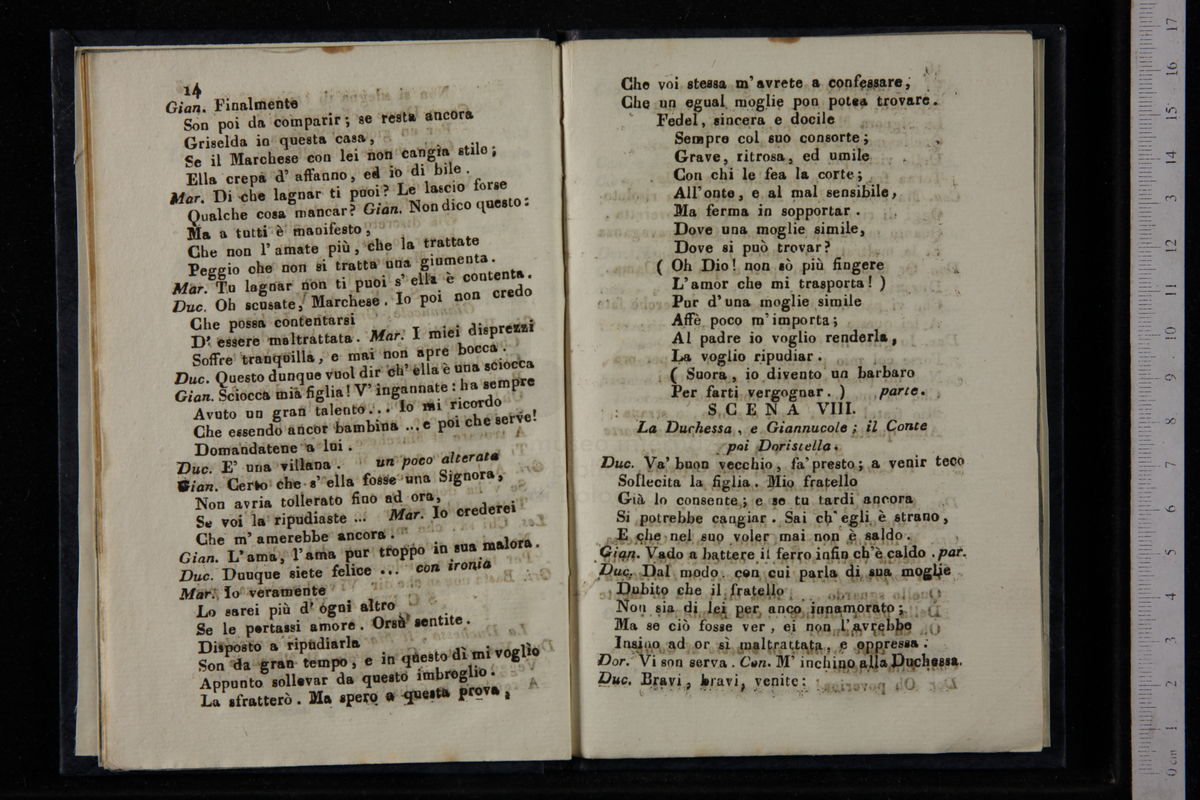 14
Gian. Finalmente
Son poi da comparir; se resta ancora
Griselda in questa casa,
Se il Marchese con lei non cangia stile;
Ella crepa d' affanno, ed io di bile.
Mar. Di che lagnar ti puoi? Le lascio forse
Qualche cosa mancar? Gian. Non dico questo:
Ma a tutti è manifesto,
Che non l'amate più, che la trattate
Peggio che non si tratta una giumenta.
Mar. Tu lagnar non ti puoi s' ella è contenta.
Duc. Oh scusate, Marchese. Io poi non credo
Che possa contentarsi
D' essere maltrattata. Mar. I miei disprezzi
Soffre tranquilla, e mai non apre bocca.
Duc. Questo dunque vuol dir ch' ella è una sciocca
Gian. Sciocca mia figlia! V' ingannate: ha sempre
Avuto un gran talento... Io mi ricordo
Che essendo ancor bambina ...e poi che serve!
Domandatene a lui.
Duc. E' una villana. un poco alterata
Gian. Certo che s' ella fosse una Signora,
Non avria tollerato fino ad ora,
Se voi la ripudiaste ... Mar. Io crederei
Che m' amerebbe ancora.
Gian. L'ama, l'ama pur troppo in sua malora.
Duc. Dunque siete felice ... con ironia
Mar. Io veramente
Lo sarei più d' ogni altro
Se le portassi amore. Orsù sentite.
Disposto a ripudiarla
Son da gran tempo, e in questo dì mi voglio
Appunto sollevar da questo imbroglio.
La sfratterò. Ma spero a questa prova,
Che voi stessa m'avrete a confessare,
Che un egual moglie pon potea trovare.
Fedel, sincera e docile
Sempre col suo consorte;
Grave, ritrosa, ed umile
Con chi le fea la corte;
All'onte, e al mal sensibile,
Ma ferma in sopportar.
Dove una moglie simile,
Dove si può trovar?
( Oh Dio! non sò più fingere
L'amor che mi trasporta! )
Pur d'una moglie simile
Affè poco m'importa;
Al padre io voglio renderla,
La voglio ripudiar.
( Suora, io divento un barbaro
Per farti vergognar. ) parte.
SCENA VIII.
La Duchessa, e Giannucole; il Conte
poi Doristella.
Duc. Va' buon vecchio, fa' presto; a venir teco
Sollecita la figlia. Mio fratello
Già lo consente; e se tu tardi ancora
Si potrebbe cangiar. Sai ch' egli è strano,
E che nel suo voler mai non è saldo.
Gian. Vado a battere il ferro infin ch'è caldo. par.
Duc. Dal modo con cui parla di sua moglie
Dubito che il fratello
Non sia di lei per anco innamorato;
Ma se ciò fosse ver, ei non l'avrebbe
Insino ad or sì maltrattata, e oppressa.
Dor. Vi son serva. Con. M' inchino alla Duchessa.
Duc. Bravi, bravi, venite: